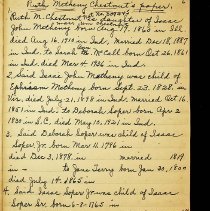 6
Ruth Matheny Chestnut's paper.
Ruth M. Chestnut is daughter of Isaac
John Matheny born Aug 17, 1863 in Ill
died Aug 16, 1918 in Ind. Married Dec 18, 1887
in Ind. to Sarah McCall born Oct 26, 1861
in Ind. died Mar 4 1926 in Ind.
2. Said Isaac John Matheny was child of
Ephraim Matheny born Sept. 23. 1828. in
died July 21, 1878 in Ind. Married Oct 16.
in Ind. to Deborah Soper born Apr 2
1830 in S.C. died May 10, 1921 in Ind.
3. Said Deborah Soper was child of Isaac
Soper Jr. born Mar 11, 1796 in
died Dec 3, 1878. in married 1819
in to Jane Terry born Jan 23, 1800
died July 14, 1865 in
4. Said Isaac Soper Jr. was child of Isaac
Soper Sr. born 6-8-1765 in